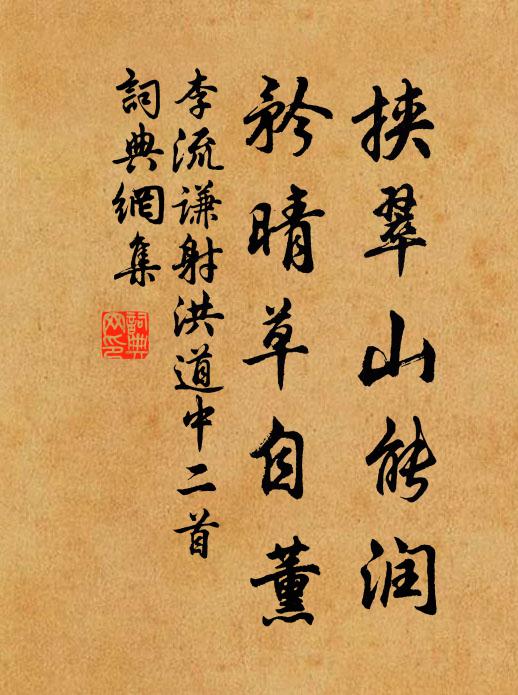 挟翠山能润
矜晴草自薰
李流谦射洪道中二首
詞典網集
詞典網印